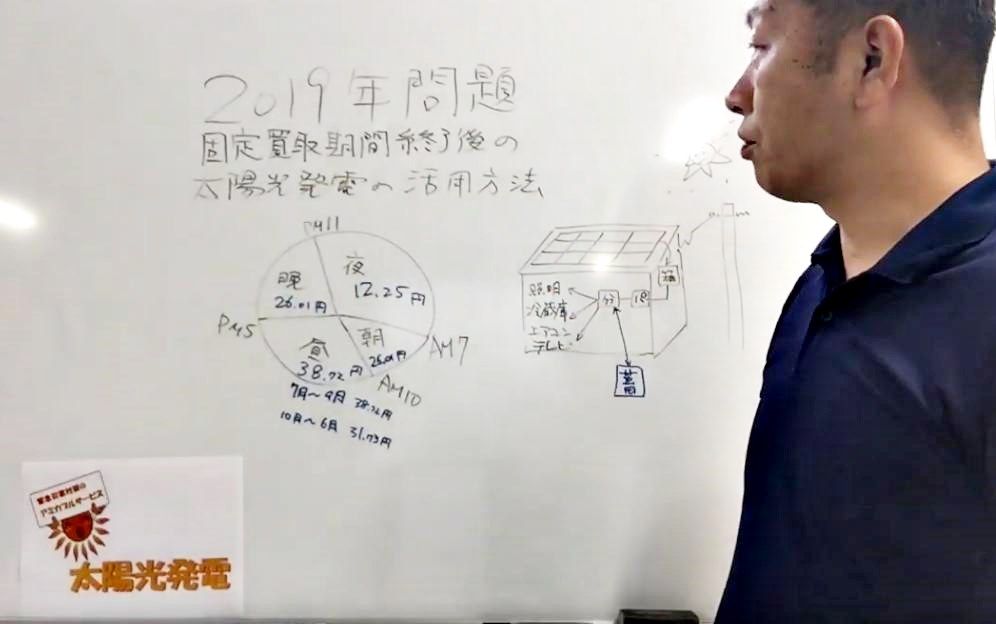 2019年問題
固定買取期間終了後の
太陽光発電の活用方法
PM11
夜
12.25円
晩
26.01円
PM5
朝
26.01円
AM7
昼
38.72円
AM10
7月〜9月 38.72円
10月〜6月 31.73円
照明
冷蔵庫
エアコン
テレビ
分
蓄
アミカブルサービス
太陽光発電